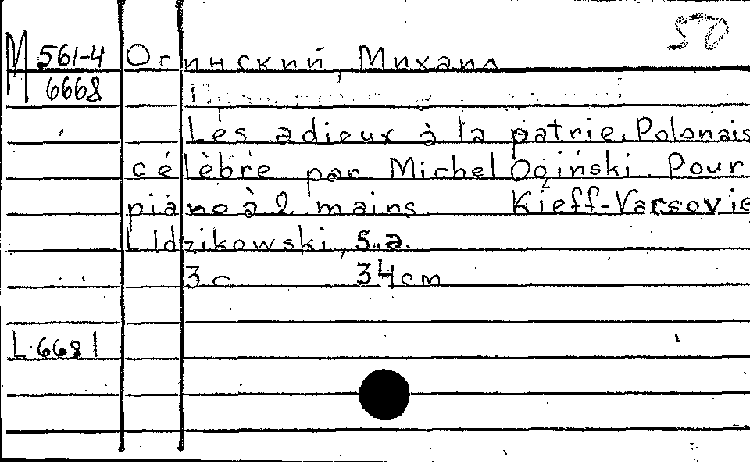 50
M 561-4 Огинский, Михаил
6668
Les adieux à la patrie. Polonais
célèbre par Michel Oginski. Pour
piano à 2 mains Kieff-Varsovie
L Idzikowski, s.a.
3 c 34 cm
L 6681